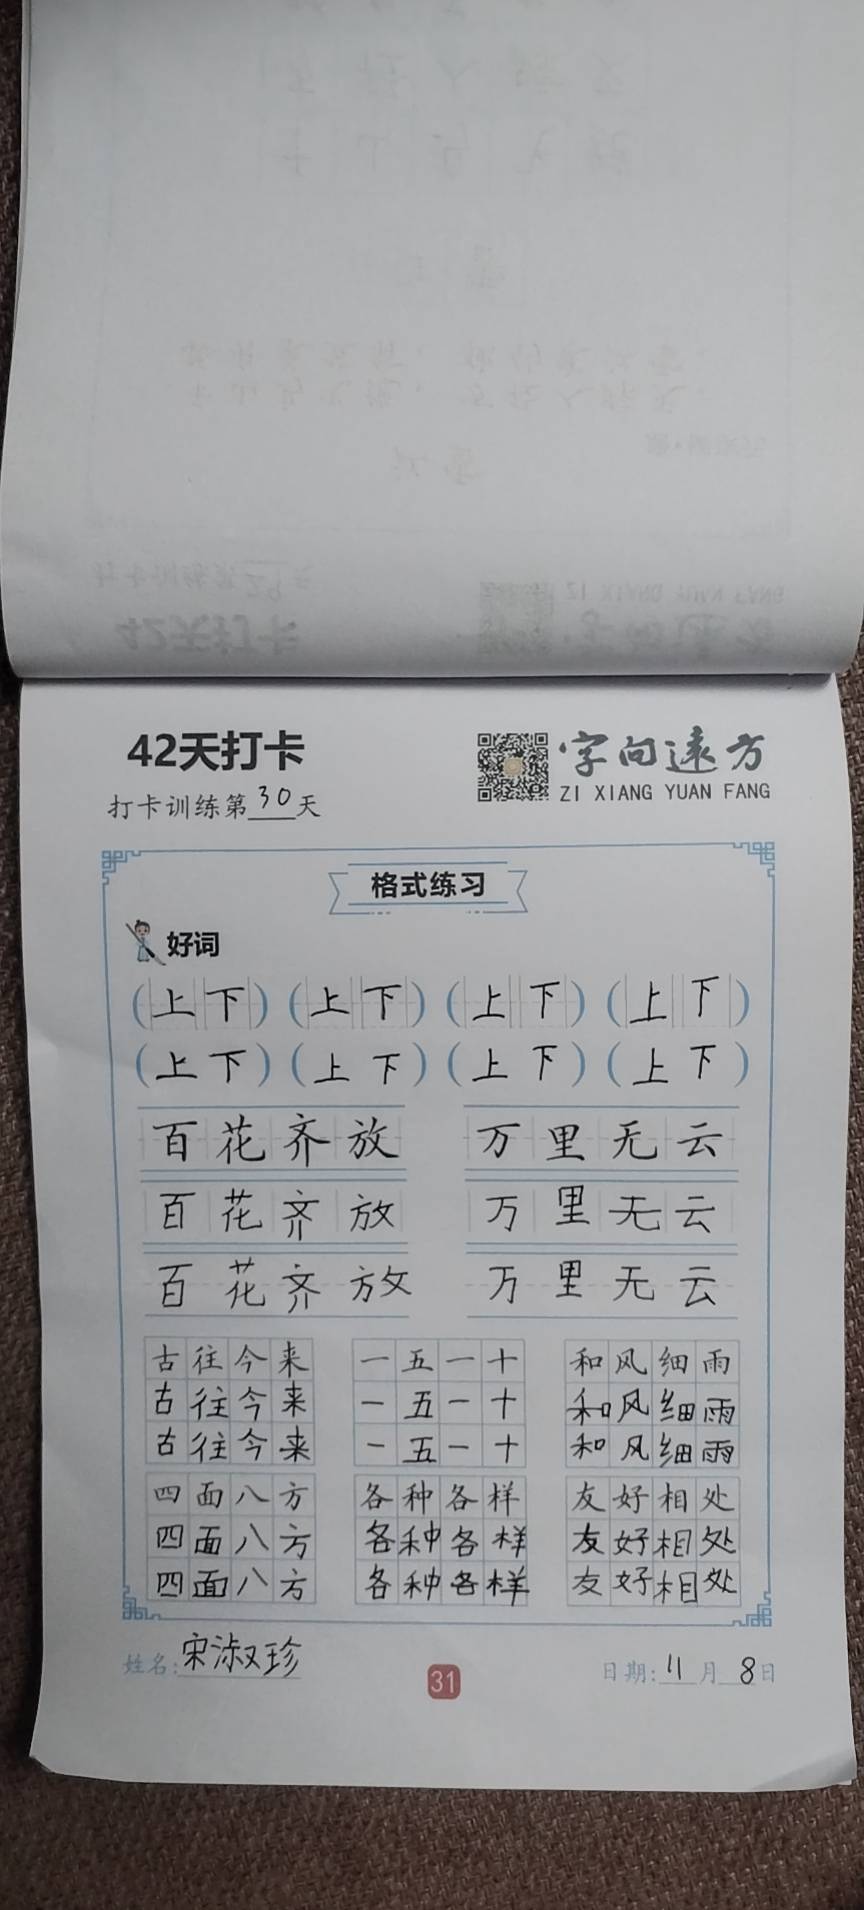 42天打卡
字向远方
ZI XIANG YUAN FANG
打卡训练第30天
格式练习
好词
(上下) (上下) (上下) (上下)
(上下) (上下) (上下) (上下)
百花齐放 万里无云
百花齐放 万里无云
百花齐放 万里无云
古往今来 一五一十 和风细雨
古往今来 一五一十 和风细雨
古往今来 一五一十 和风细雨
四面八方 各种各样 友好相处
四面八方 各种各样 友好相处
四面八方 各种各样 友好相处
姓名:宋淑珍 31 日期:11月8日